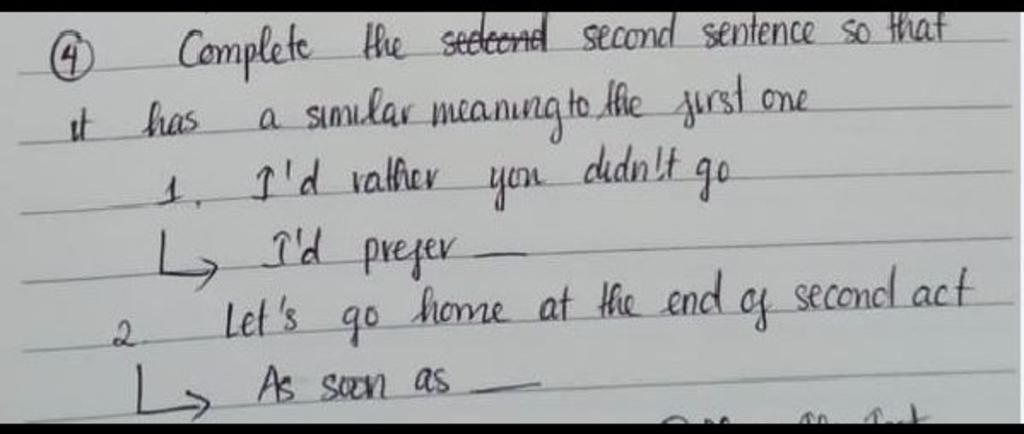 ④ Complete the second sentence so that
it has a similar meaning to the first one
1. I'd rather you didn't go
↳ I'd prefer __
2. Let's go home at the end of second act
↳ As soon as __